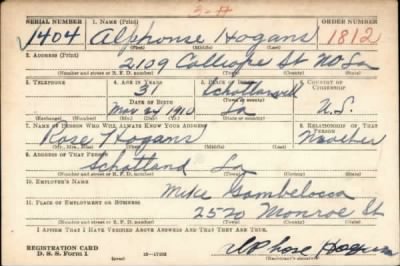 3-A
SERIAL NUMBER 1. NAME (Print) ORDER NUMBER
1404 Alphonse Hogans 1812
(First) (Middle) (Last)
2. ADDRESS (Print)
2109 Calliope St N.O. La
(Number and street or R. F. D. number) (Town) (County) (State)
3. TELEPHONE 4. AGE IN YEARS 5. PLACE OF BIRTH 6. COUNTRY OF CITIZENSHIP
31
DATE OF BIRTH
May 24 1910 La U.S.
(Exchange) (Number) (Mo.) (Day) (Yr.) (State or country)
7. NAME OF PERSON WHO WILL ALWAYS KNOW YOUR ADDRESS 8. RELATIONSHIP OF THAT PERSON
Rose Hogans Mother
(Mr., Mrs., Miss) (First) (Middle) (Last)
9. ADDRESS OF THAT PERSON
Schatland La
(Number and street or R. F. D. number) (Town) (County) (State)
10. EMPLOYER'S NAME
Mike Gambelocca
11. PLACE OF EMPLOYMENT OR BUSINESS
2520 Monroe St
(Number and street or R. F. D. number) (Town) (County) (State)
I AFFIRM THAT I HAVE VERIFIED ABOVE ANSWERS AND THAT THEY ARE TRUE.
REGISTRATION CARD
D. S. S. Form 1 16-17105
(Registrant's signature)